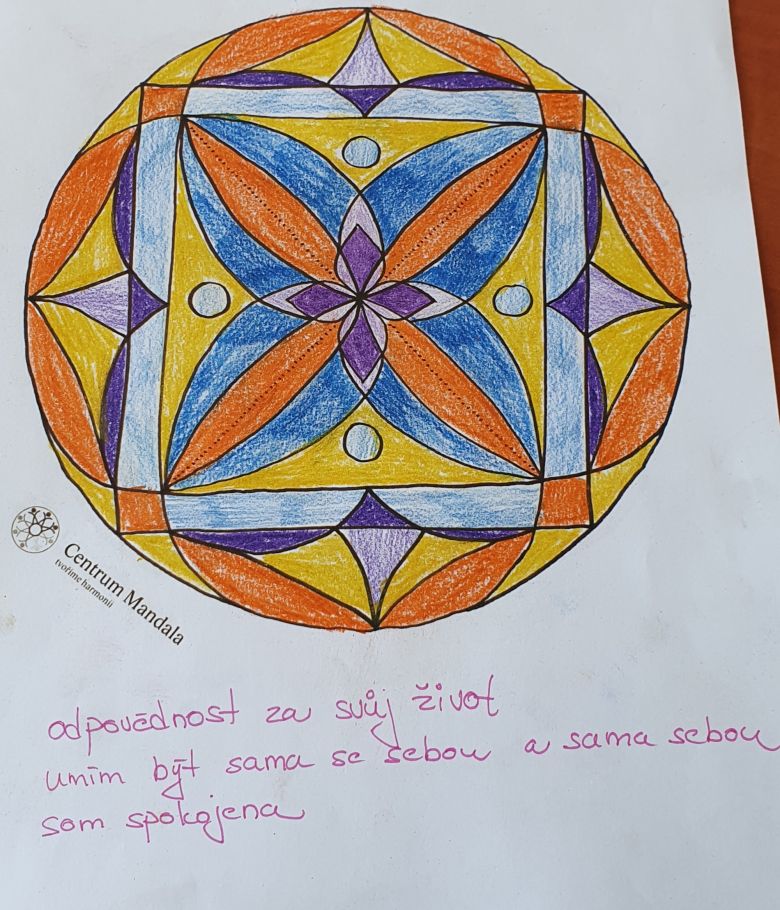 Centrum Mandala
tvoříme harmonii
odpovědnost za svůj život
umím být sama se sebou a sama sebou
som spokojena